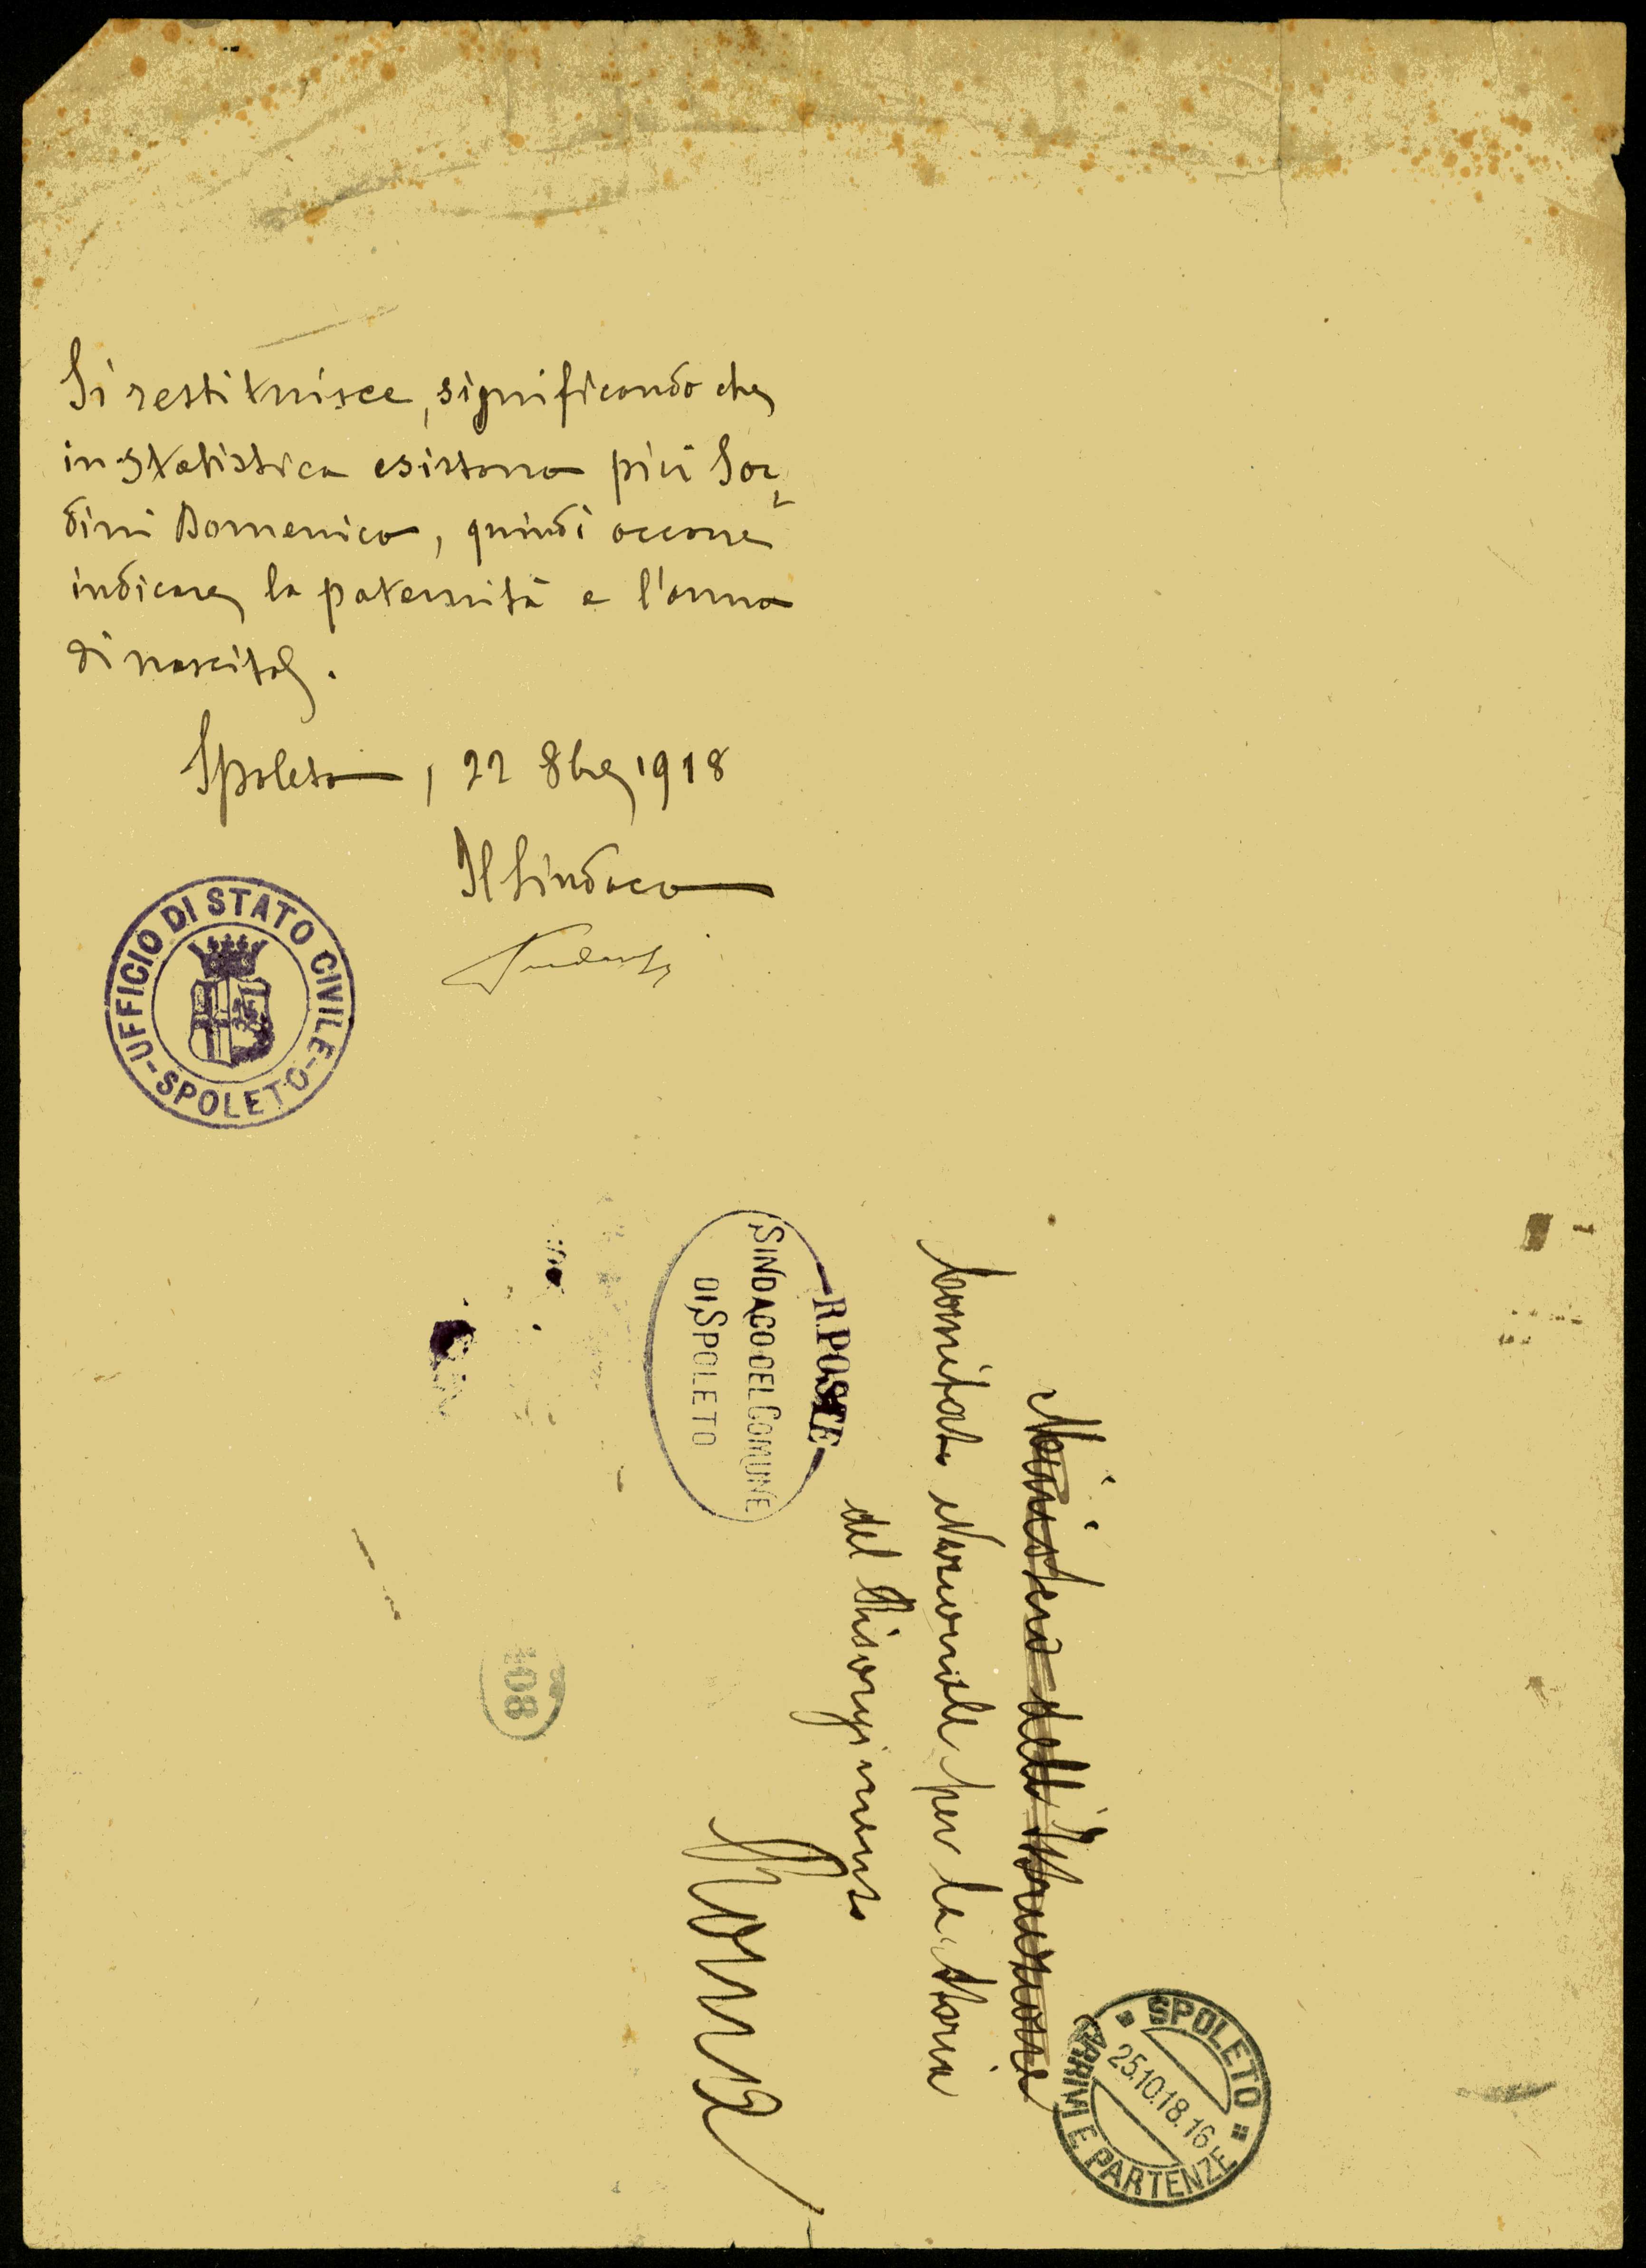 Si restituisce, significando che
in statistica esistono più Sor-
dini Domenico, quindi occorre
indicare la paternità e l'anno
di nascita.
Spoleto, 22 8bre 1918
Il Sindaco
UFFICIO DI STATO CIVILE
-SPOLETO-
Ministero dell'Istruzione
Comitato Nazionale per la Storia
del Risorgimento
Roma
R. POSTE
SINDACO DEL COMUNE
DI SPOLETO
SPOLETO
25.10.18.16
ARRIVI E PARTENZE